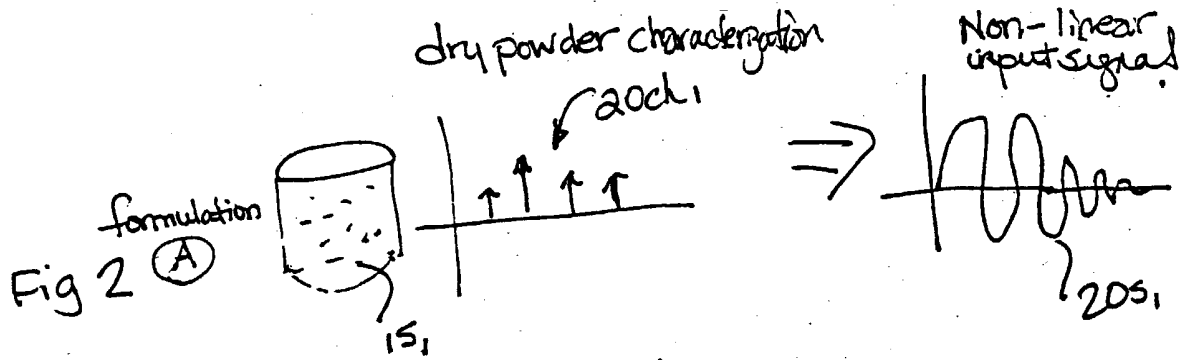 dry powder characterization
20ch1
Non-linear
input signal
formulation
A
Fig 2
15,
20s1